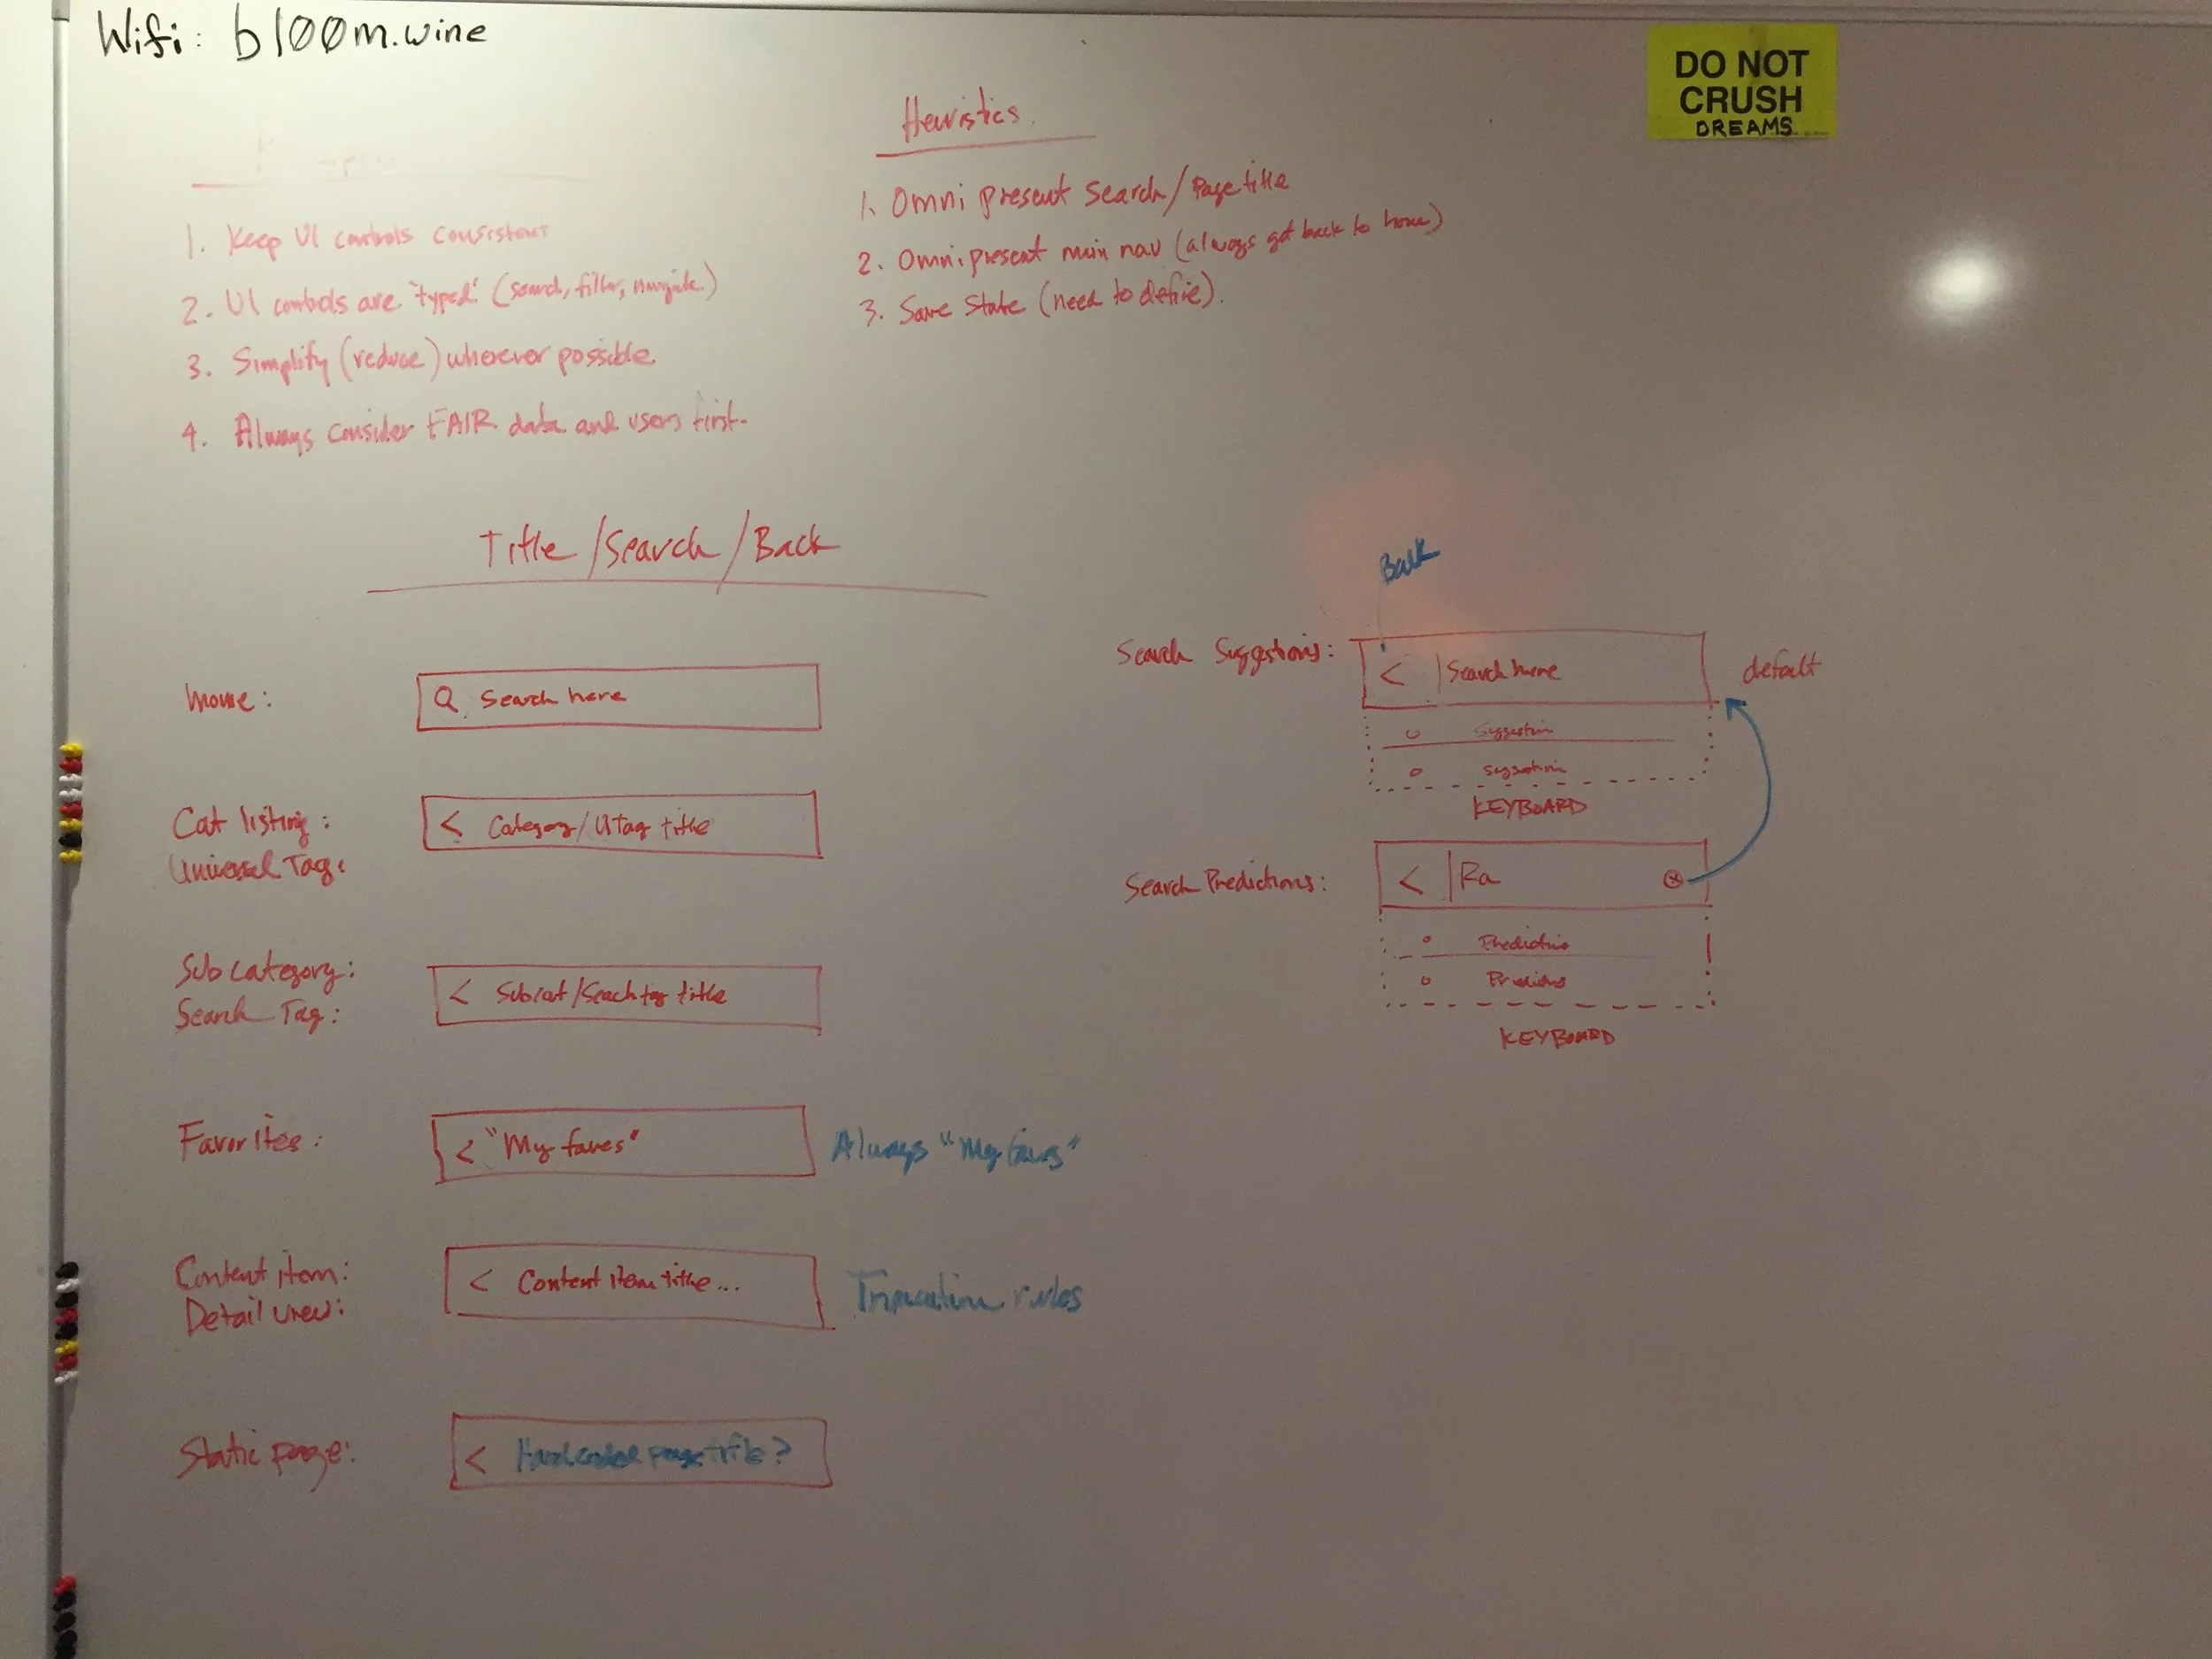 Wifi: bl00m.wine
DO NOT
CRUSH
DREAMS
1. Keep UI controls consistent
2. UI controls are "typed" (search, filter, navigate)
3. Simplify (reduce) wherever possible.
4. Always consider FAIR data and users first.
Heuristics.
1. Omni present search/Page title
2. Omnipresent main nav (always get back to home)
3. Save State (need to define).
Title/Search/Back
Home:
Search here
Cat listing:
Universal Tag:
< Category/UTag title
Sub category:
Search Tag:
< Subcat/Seach tag title
Favorites:
< "My faves"
Always "My favs"
Content item:
Detail view:
< Content item title...
Truncation rules
Static page:
< Hard coded page title?
Back
Search Suggestions:
< |Search here
default
Suggestion
Suggestion
KEYBOARD
Search Predictions:
< |Ra
Predictions
Predictions
KEYBOARD